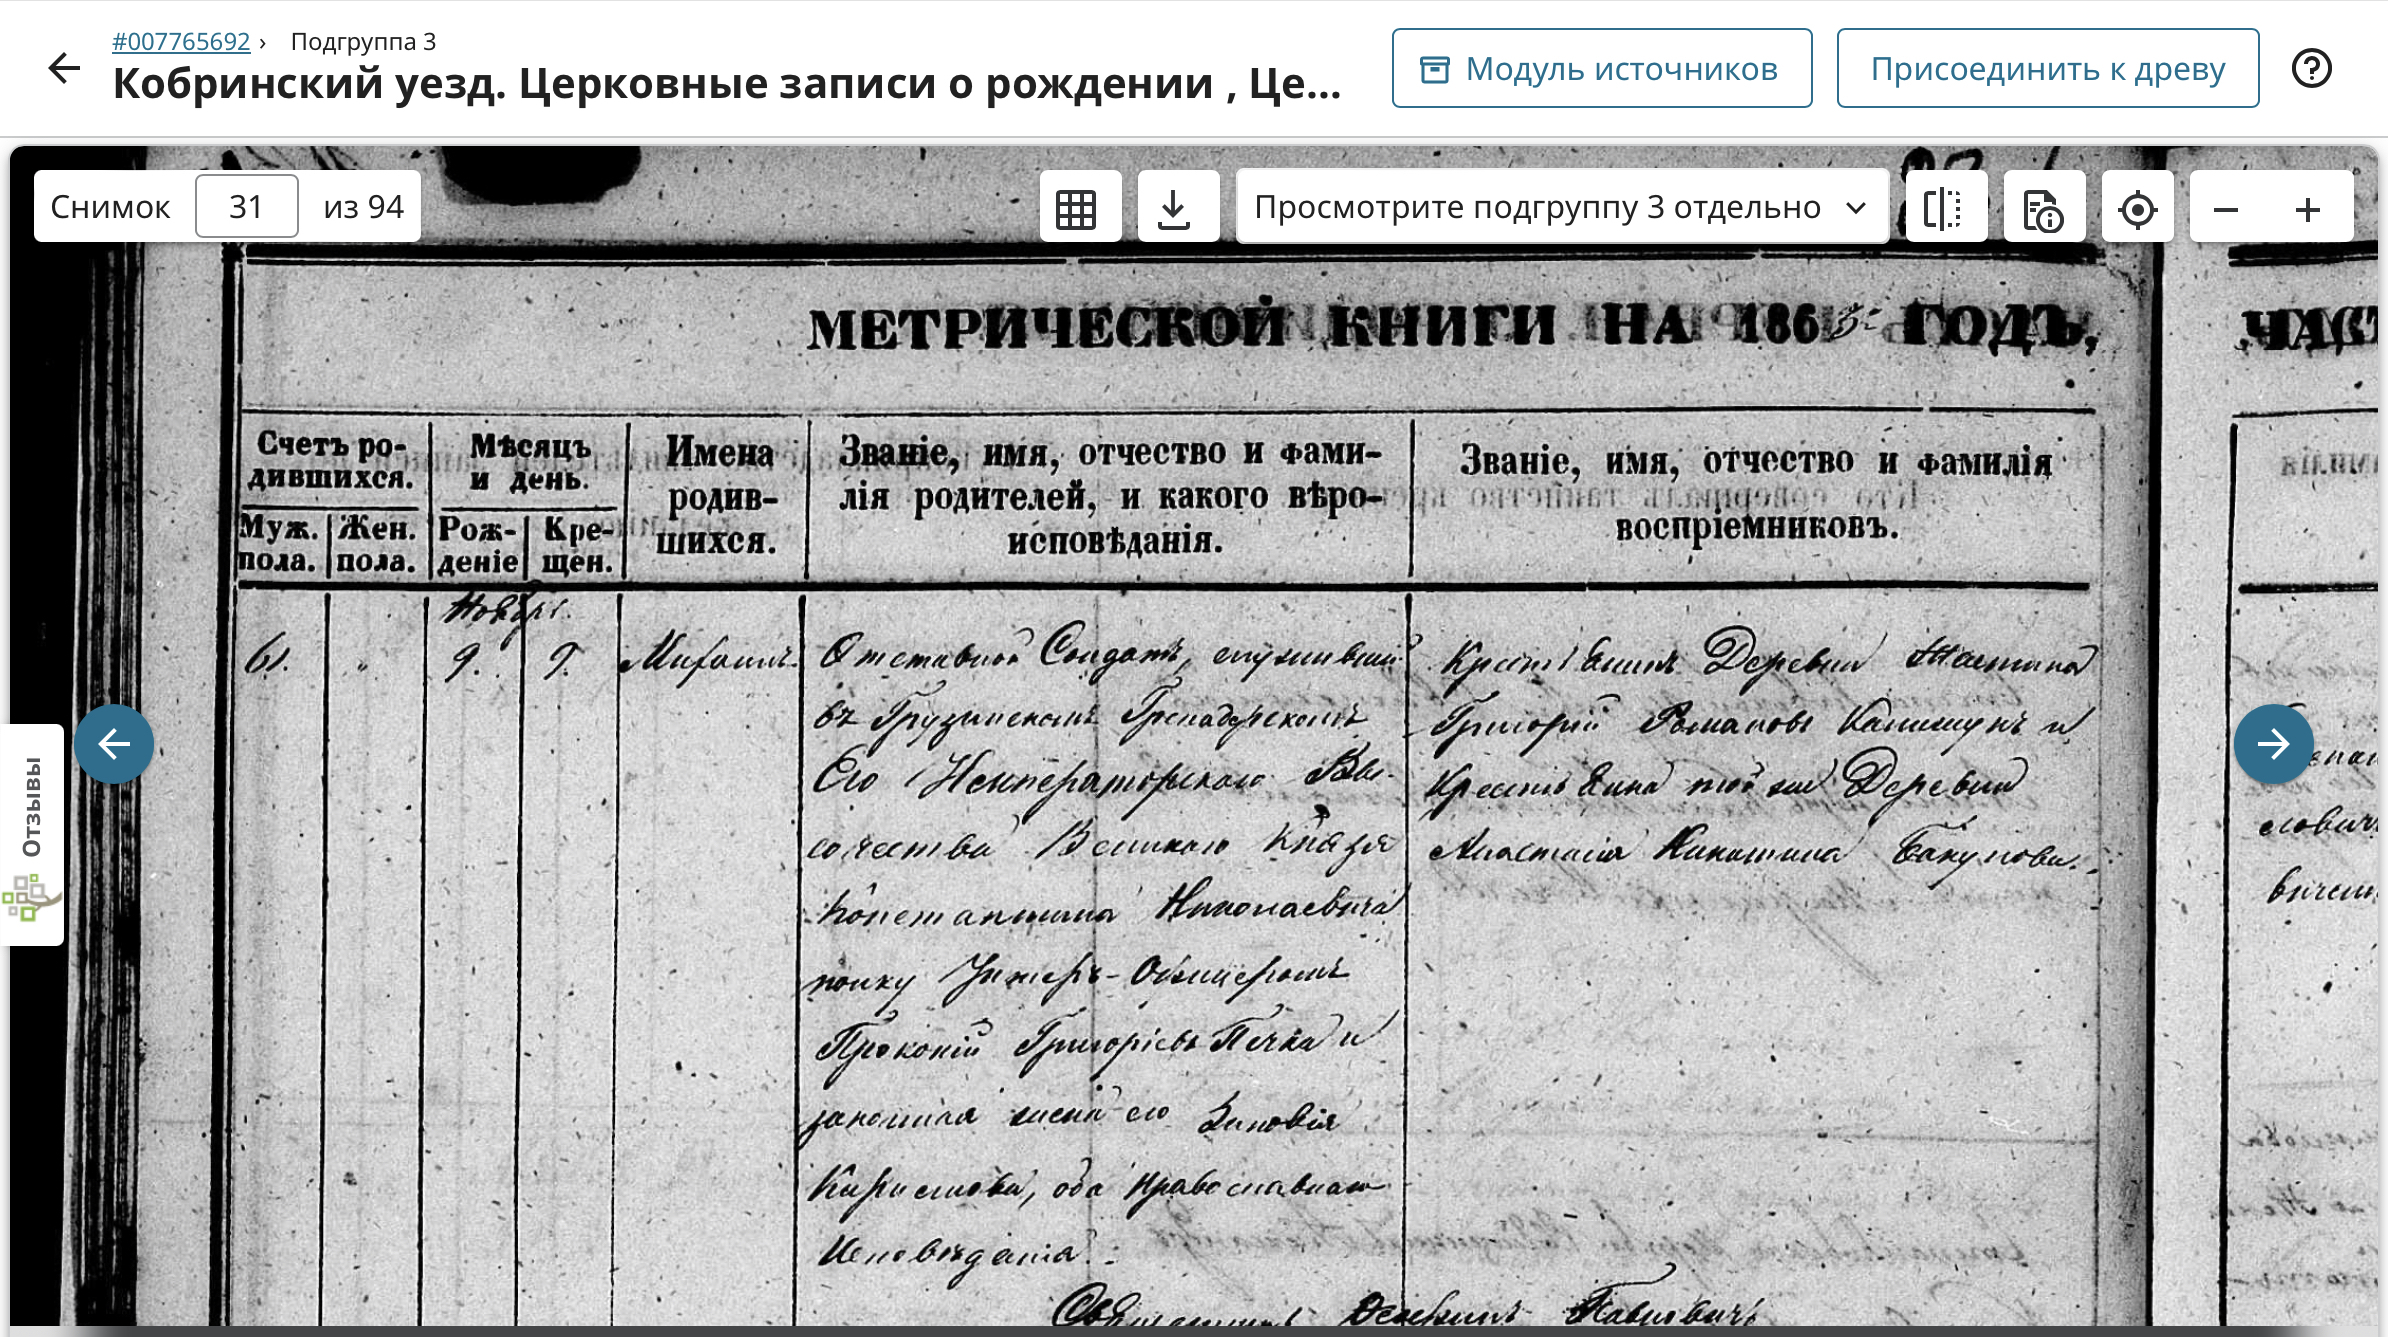 #007765692 › Подгруппа 3
Кобринский уезд. Церковные записи о рождении , Це...
Модуль источников
Присоединить к древу
Снимок 31 из 94
Просмотрите подгруппу 3 отдельно
Отзывы
МЕТРИЧЕСКОЙ КНИГИ НА 1865 ГОДЪ,
ЧАСТ
Счетъ ро-
дившихся.
Муж.
пола.
Жен.
пола.
Мѣсяцъ
и день.
Рож-
деніе
Кре-
щен.
Имена
родив-
шихся.
Званіе, имя, отчество и фами-
лія родителей, и какого вѣро-
исповѣданія.
Званіе, имя, отчество и фамилія
воспріемниковъ.
Ноябрь.
61. " 9. 9. Михаилъ.
Отставной Солдатъ, служившій
въ Грузинскомъ Гренадерскомъ
Его Императорскаго Вы-
сочества Великаго Князя
Константина Николаевича
полку Унтеръ-Офицеромъ
Прокопій Григорьевъ Печка и
законная жена его Зиновія
Кирилова, оба православнаго
Исповѣданія.
Крестьянинъ Деревни
Григорій Романовъ и
Крестьянка той же Деревни
Анастасія
Священникъ Павловичъ